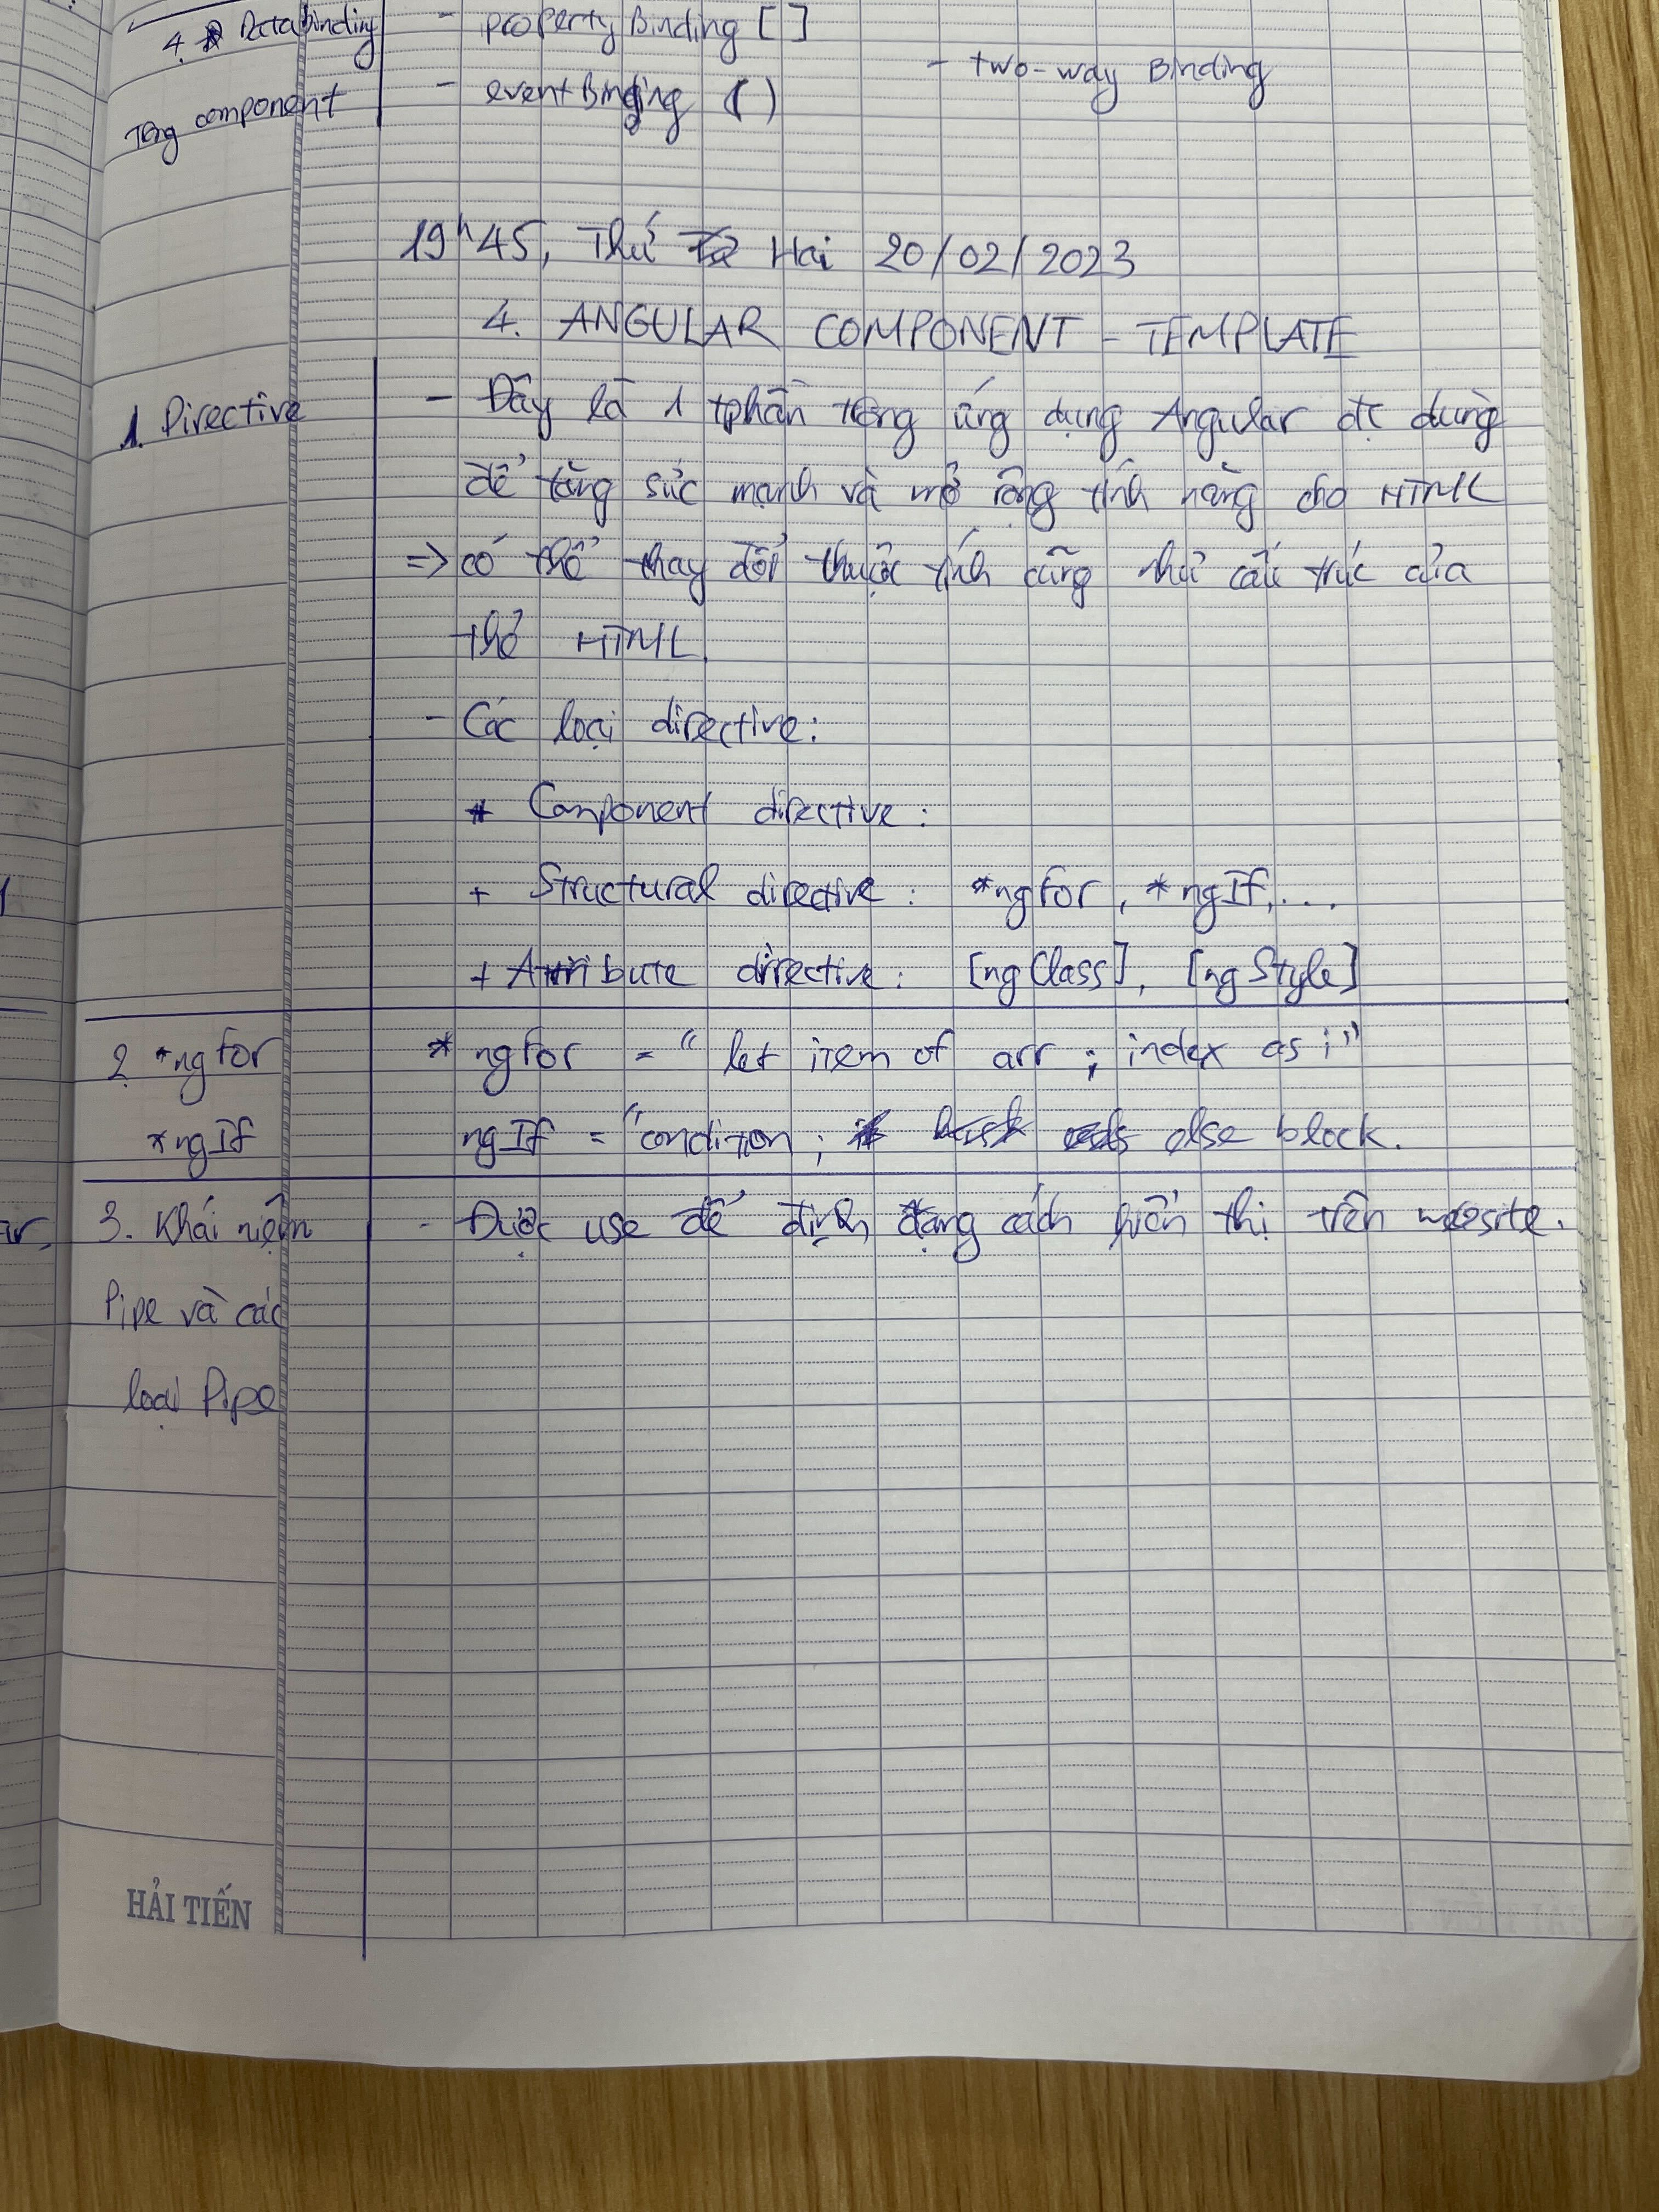 4. Databinding
- property Binding [ ]
- two-way Binding
- event Binding ( )
Trong component
19h45, Thứ Hai 20/02/2023
4. ANGULAR COMPONENT - TEMPLATE
1. Directive
- Đây là 1 tphần trong ứng dụng Angular đc dùng
để tăng sức mạnh và mở rộng tính năng cho HTML
=> có thể thay đổi thuộc tính cũng như cấu trúc của
thẻ HTML.
- Các loại directive:
+ Component directive:
+ Structural directive: *ngFor, *ngIf,...
+ Attribute directive: [ngClass], [ngStyle]
2. *ngFor
*ngFor = "let item of arr ; index as i"
*ngIf
ngIf = "condition; else block.
3. Khái niệm
- Được use để định dạng cách hiển thị trên website.
Pipe và các
loại Pipe
HẢI TIẾN